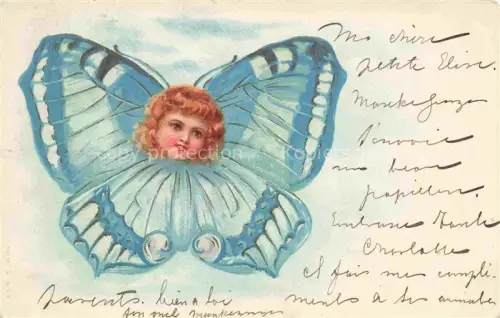 Ma chère
petite Elise.
t'envoie
un beau
papillon.
Embrasse Tante
Charlotte
et fais mes compli
ments à tes aimables
parents. bien à toi
ton oncl